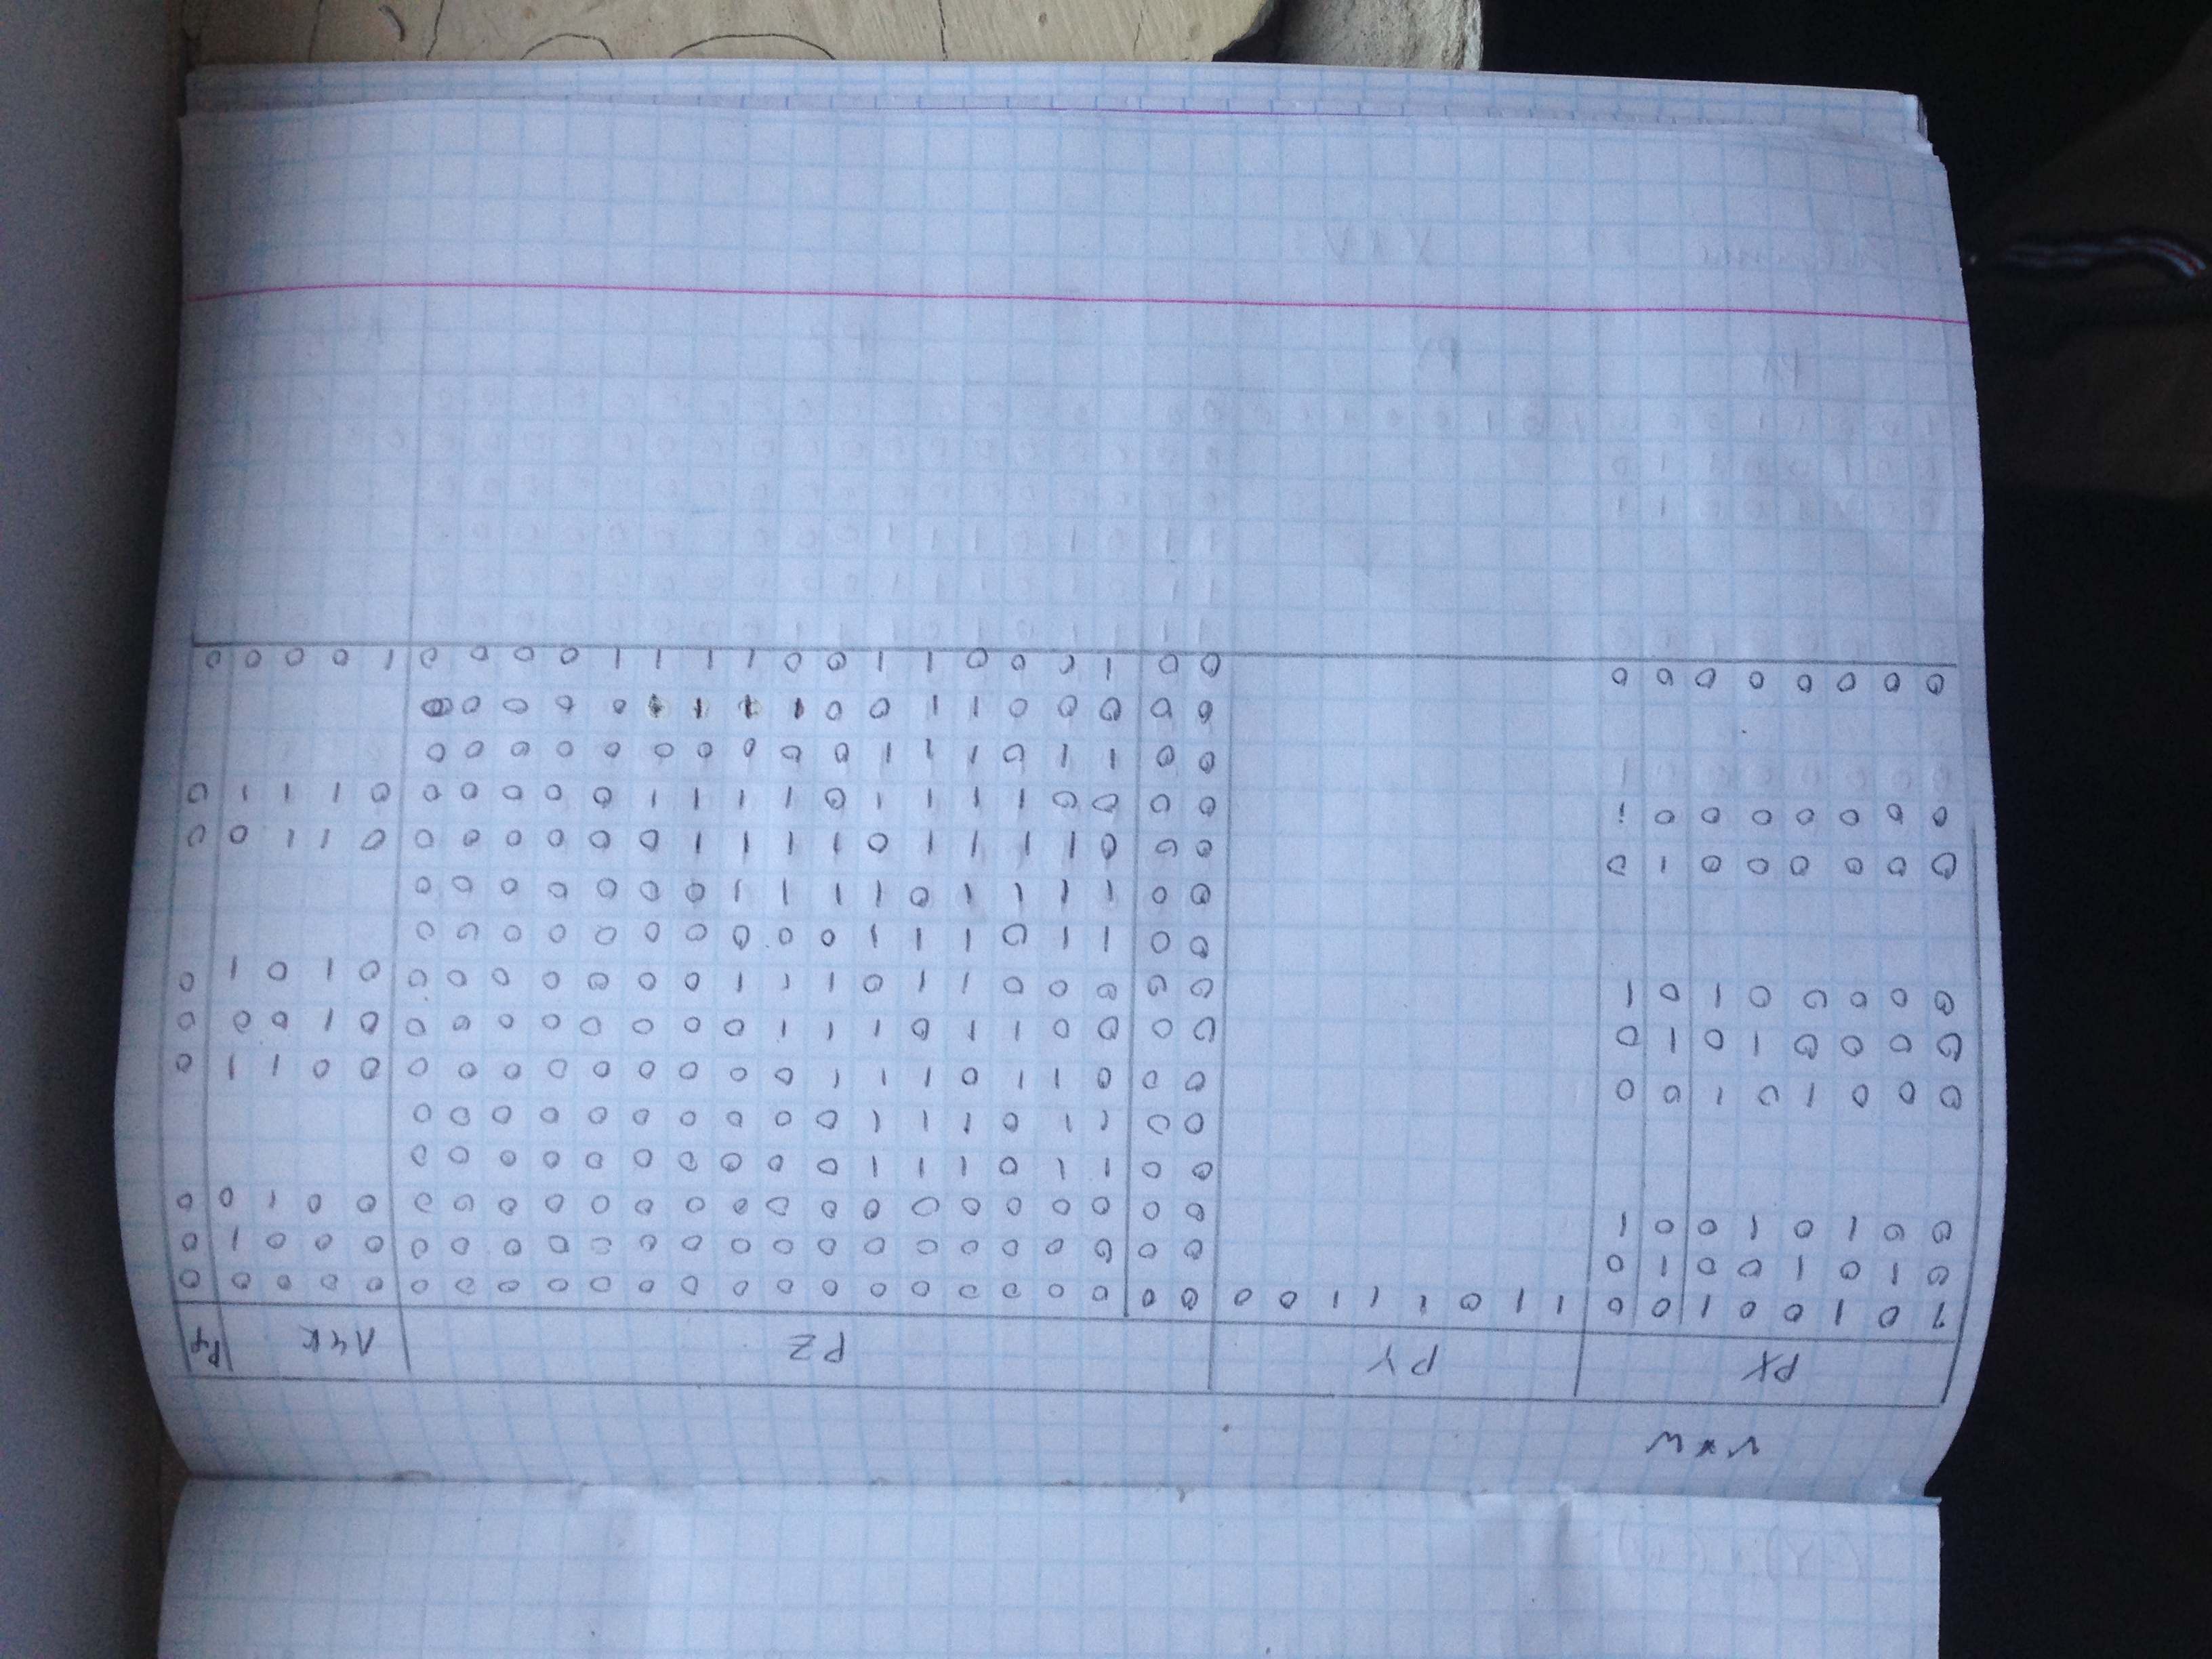 V*W
PX PY PZ ЛЧК Рф
1 0 1 0 0 1 0 0 1 1 0 1 1 1 0 0 0 0 0 0 0 0 0 0 0 0 0 0 0 0 0 0 0 0 0 0 0 0 0
0 1 0 1 0 0 1 0 0 0 0 0 0 0 0 0 0 0 0 0 0 0 0 0 0 0 0 0 0 1 0
0 0 1 0 1 0 0 1 0 0 0 0 0 0 0 0 0 0 0 0 0 0 0 0 0 0 0 0 1 0 0
0 0 1 1 0 1 1 1 0 0 0 0 0 0 0 0 0 0
0 0 1 1 0 1 1 1 0 0 0 0 0 0 0 0 0 0
0 0 0 1 0 1 0 0 0 0 0 1 1 0 1 1 1 0 0 0 0 0 0 0 0 0 0 0 1 1 0
0 0 0 0 1 0 1 0 0 0 0 0 1 1 0 1 1 1 0 0 0 0 0 0 0 0 0 1 0 0 0
0 0 0 0 0 1 0 1 0 0 0 0 0 1 1 0 1 1 1 0 0 0 0 0 0 0 0 1 0 1 0
0 0 1 1 0 1 1 1 0 0 0 0 0 0 0 0 0 0
0 0 1 1 1 1 0 1 1 1 1 0 0 0 0 0 0 0
0 0 0 0 0 0 1 0 0 0 0 1 1 1 1 0 1 1 1 1 0 0 0 0 0 0 0 1 1 0 0
0 0 0 0 0 0 0 1 0 0 0 0 1 1 1 1 0 1 1 1 1 0 0 0 0 0 0 1 1 1 0
0 0 1 1 0 1 1 1 0 0 0 0 0 0 0 0 0 0
0 0 0 0 0 1 1 0 0 1 1 1 1 0 0 0 0 0
0 0 0 0 0 0 0 0 0 0 1 1 0 0 1 1 0 0 1 1 1 1 0 0 0 0 1 0 0 0 0